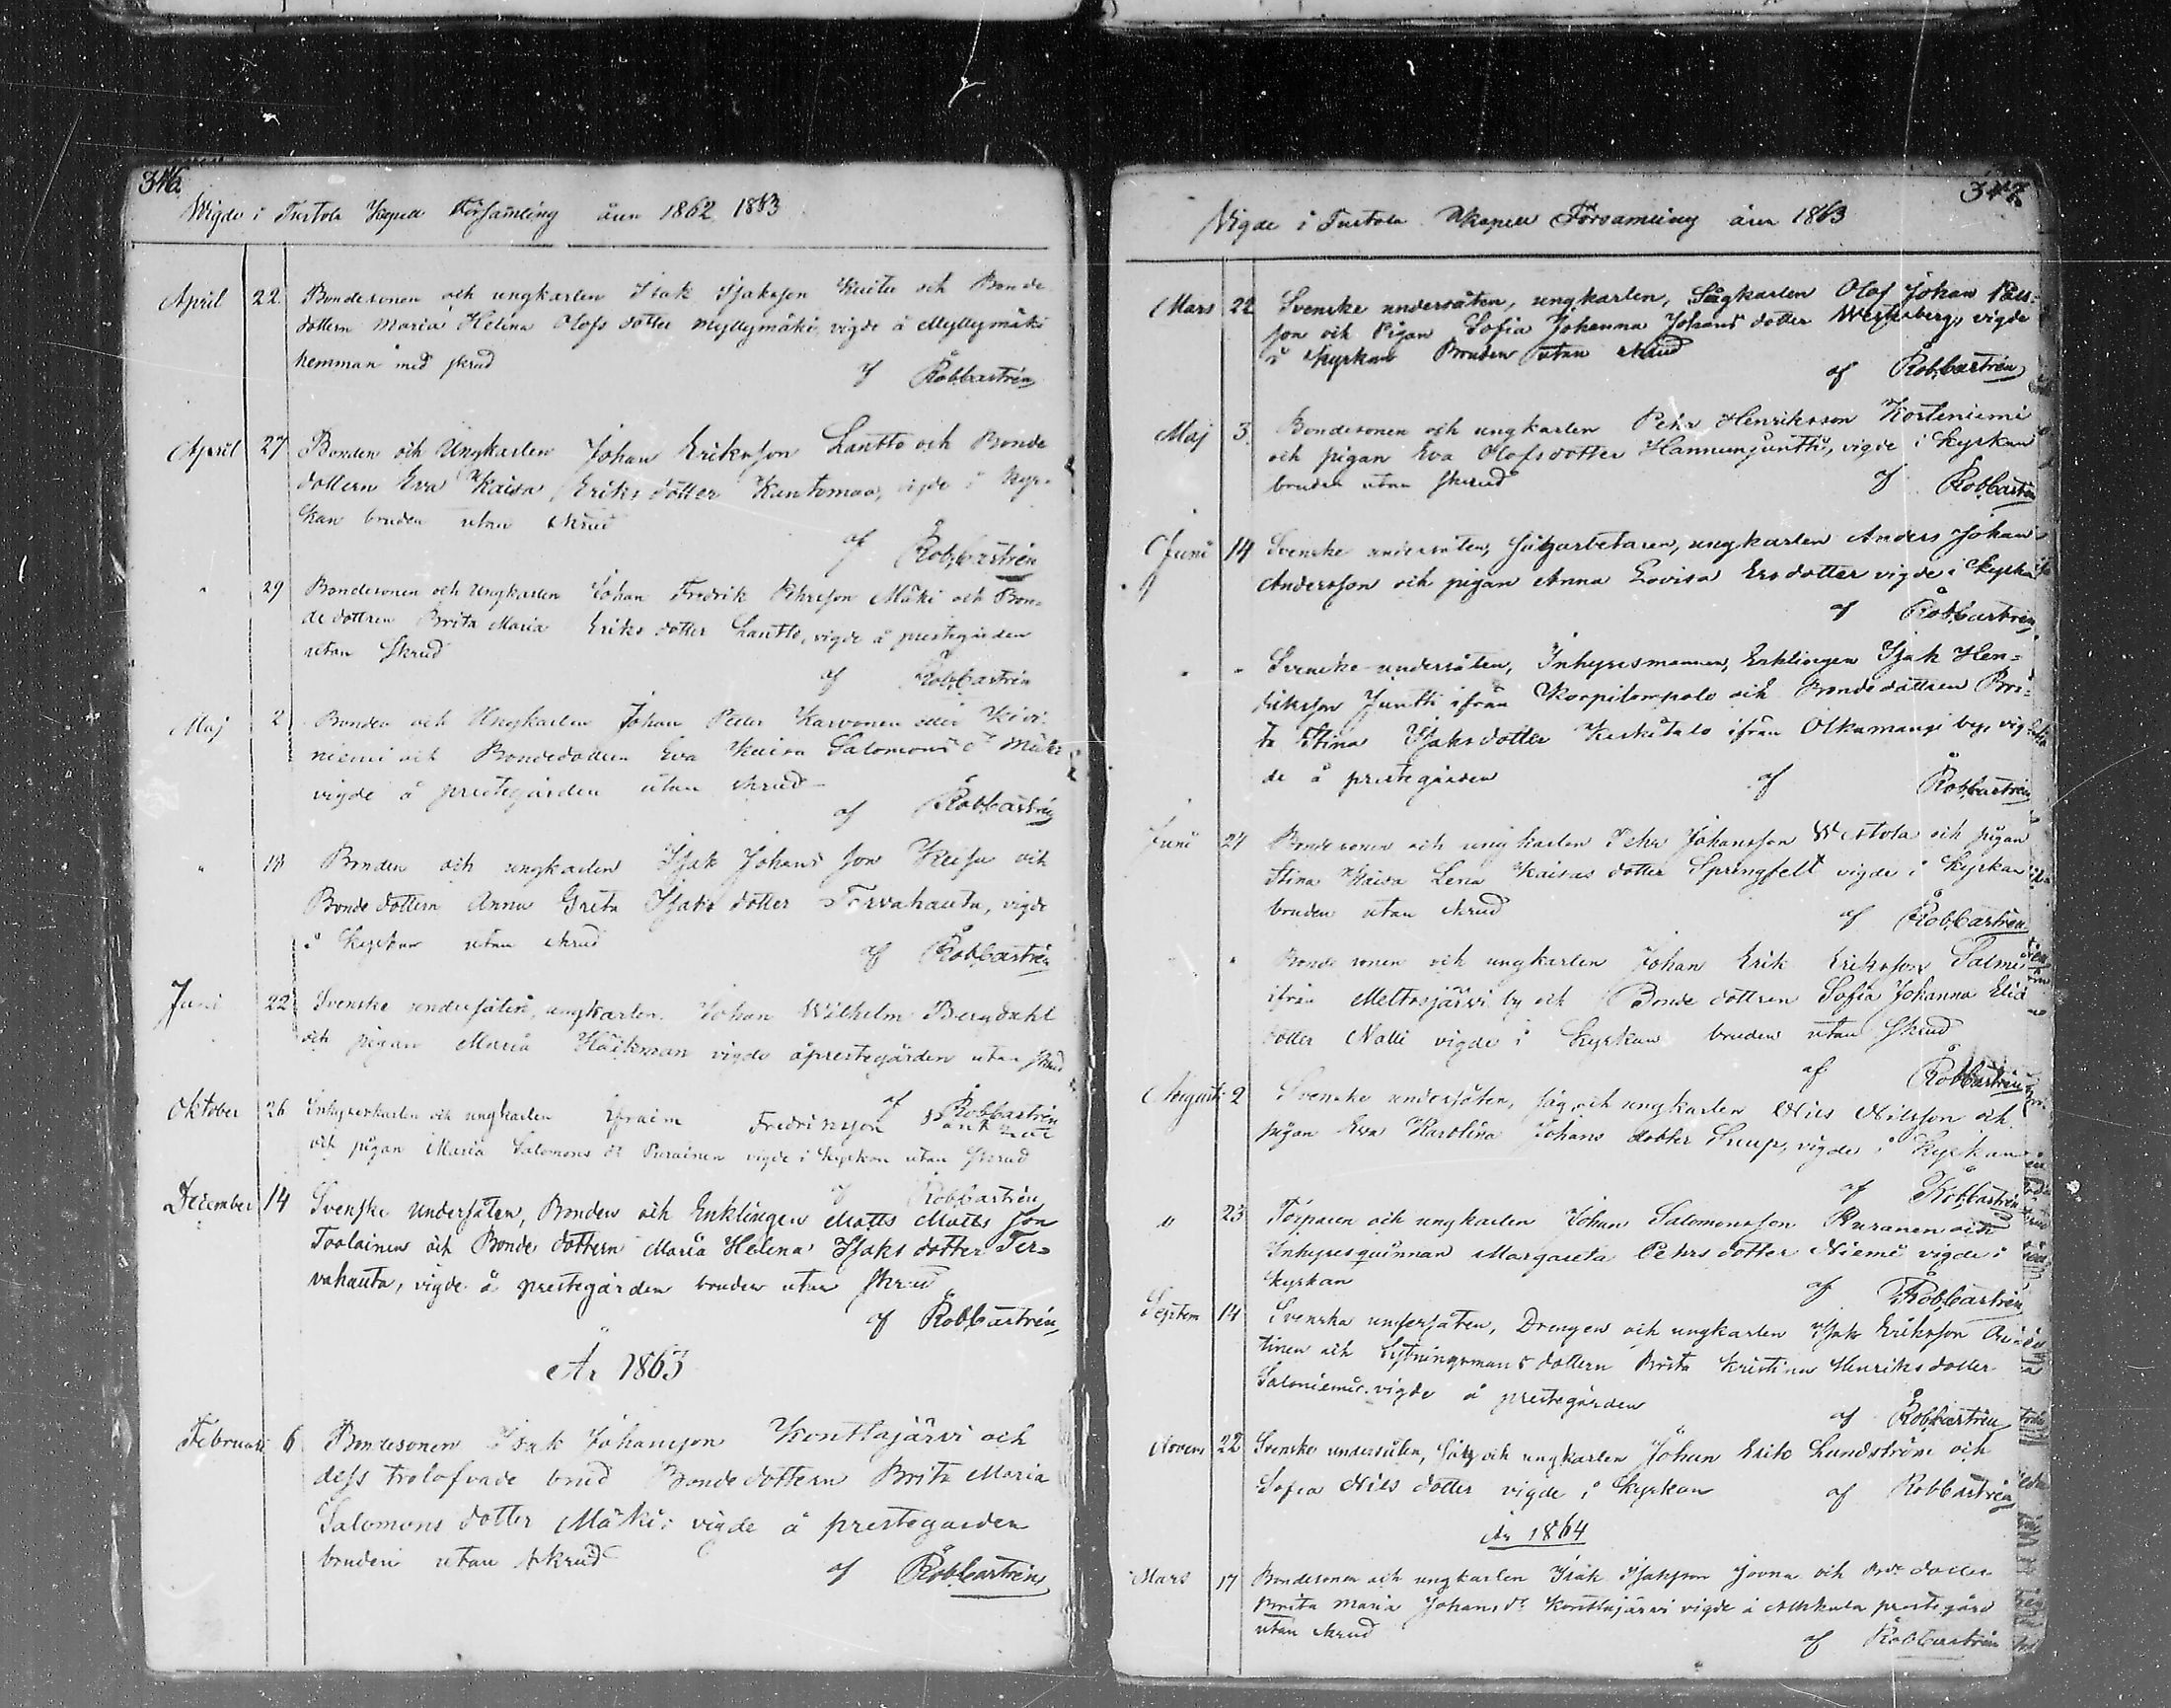 346.
Wigde i Turtola Kapell Församling åren 1862 1863
April 22 Bondesonen och ungkarlen Isak Isaksson Kuitu och Bonde
dottern Maria Helena Olofs dotter Myllymäki, vigde å Myllymäki
hemman med skrud
af RobCastrén
April 27 Bonden och Ungkarlen Johan Eriksson Lantto och Bonde
dottern Eva Kaisa Eriks dotter Kuntomaa, vigde i Kyr-
kan bruden utan skrud
af RobCastrén
" 29 Bondesonen och Ungkarlen Johan Fredrik Pehrsson Mäki och Bon-
de dottren Brita Maria Eriks dotter Lantto, vigde å prestegården
utan skrud
af RobCastrén
Maj 2 Bonden och Ungkarlen Johan Peter Karvonen eller Kivi-
niemi och Bondedottren Eva Kaisa Salomons dr Mäki
vigde å prestegården utan skrud
af RobCastrén
" 18 Bonden och ungkarlen Isak Johans son Keisu och
Bonde dottern Anna Greta Isaks dotter Tervahauta, vigde
i Kyrkan utan skrud
af RobCastrén
Juni 22 Svenske undersåten, ungkarlen Johan Wilhelm Bergdahl
och pigan Maria Häikman vigde å prestegården utan skrud
af RobCastrén
Oktober 26 Inhyseskarlen och ungkarlen Efraim Fredriksson
och pigan Maria Salomons dr Purainen vigde i kyrkan utan skrud
af RobCastrén
December 14 Svenske Undersåten, Bonden och Enklingen Matts Matts son
Toolainen och Bonde dottern Maria Helena Isaks dotter Ter-
vahauta, vigde å prestegården bruden utan skrud
af RobCastrén
År 1863
Februari 6 Bondesonen Isak Johansson Konttajärvi och
dess trolofvade brud Bonde dottern Brita Maria
Salomons dotter Mäki: vigde å prestegården
bruden utan skrud
af RobCastrén
347
Vigde i Turtola Kapell Församling åren 1863
Mars 22 Svenske undersåten, ungkarlen, Sågkarlen Olof Johan Påls-
son och Pigan Sofia Johanna Johans dotter Wejkaberg, vigde
i kyrkan Bruden utan skrud
af RobCastrén
Maj 3. Bondesonen och ungkarlen Pehr Henriksson Korteniemi
och pigan Eva Olofsdotter Hannunjuntti, vigde i kyrkan
bruden utan skrud
af RobCastrén
Juni 14 Svenske undersåten, sågarbetaren, ungkarlen Anders Johan
Andersson och pigan Anna Lovisa Ersdotter vigde i kyrkan
af RobCastrén
" " Svenske undersåten, Inhysesmannen, Enklingen Isak Hen-
riksson Juntti ifrån Korpilompolo och Bondedottren Bri-
ta Stina Isaksdotter Keskitalo ifrån Olkamangi by, vig-
de å prestegården af RobCastrén
Juni 24 Bondesonen och ungkarlen Pehr Johansson Wistola och pigan
Stina Kaisa Lena Kaisas dotter Springfelt vigde i kyrkan
bruden utan skrud
af RobCastrén
" " Bonde sonen och ungkarlen Johan Erik Eriksson Palmi
ifrån Meltosjärvi by och Bonde dottren Sofia Johanna Elia
dotter Nalli vigde i kyrkan bruden utan skrud
af RobCastrén
Augusti 2 Svenske undersåten, såg och ungkarlen Nils Nilsson och
pigan Eva Karolina Johans dotter Snup, vigde i Kyrkan
af RobCastrén
" 23 Torparen och ungkarlen Johan Salomonsson Puranen och
Inhysesquinnan Margareta Pehrs dotter Niemi vigde i
kyrkan
af RobCastrén
Septem 14 Svenska undersåten, Drengen och ungkarlen Isak Eriksson
tinen och Lystningsmans dottern Brita Kristina Henriks dotter
Saloniemi vigde å prestegården
af RobCastrén
Novem 22 Svenske undersåten, såg och ungkarlen Johan Erik Lundström och
Sofia Nils dotter vigde i kyrkan af RobCastrén
År 1864
Mars 17 Bondesonen och ungkarlen Isak Isaksson Jovna och Bde dotter
Brita Maria Johans dr Konttajärvi vigde å Alkkula prestgård
utan skrud
af RobCastrén